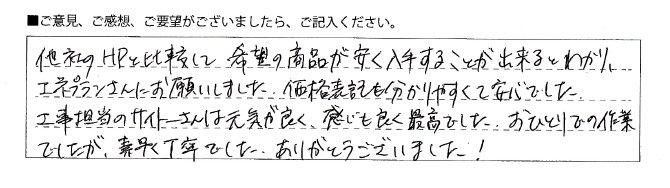 ■ご意見、ご感想、ご要望がございましたら、ご記入ください。
他社のHPと比較して希望の商品が安く入手することが出来るとわかり、
エネプランさんにお願いしました。価格表記も分かりやすくて安心でした。
工事担当のサイトーさんは元気が良く、感じも良く最高でした。おひとりでの作業
でしたが、素早く丁寧でした。ありがとうございました！